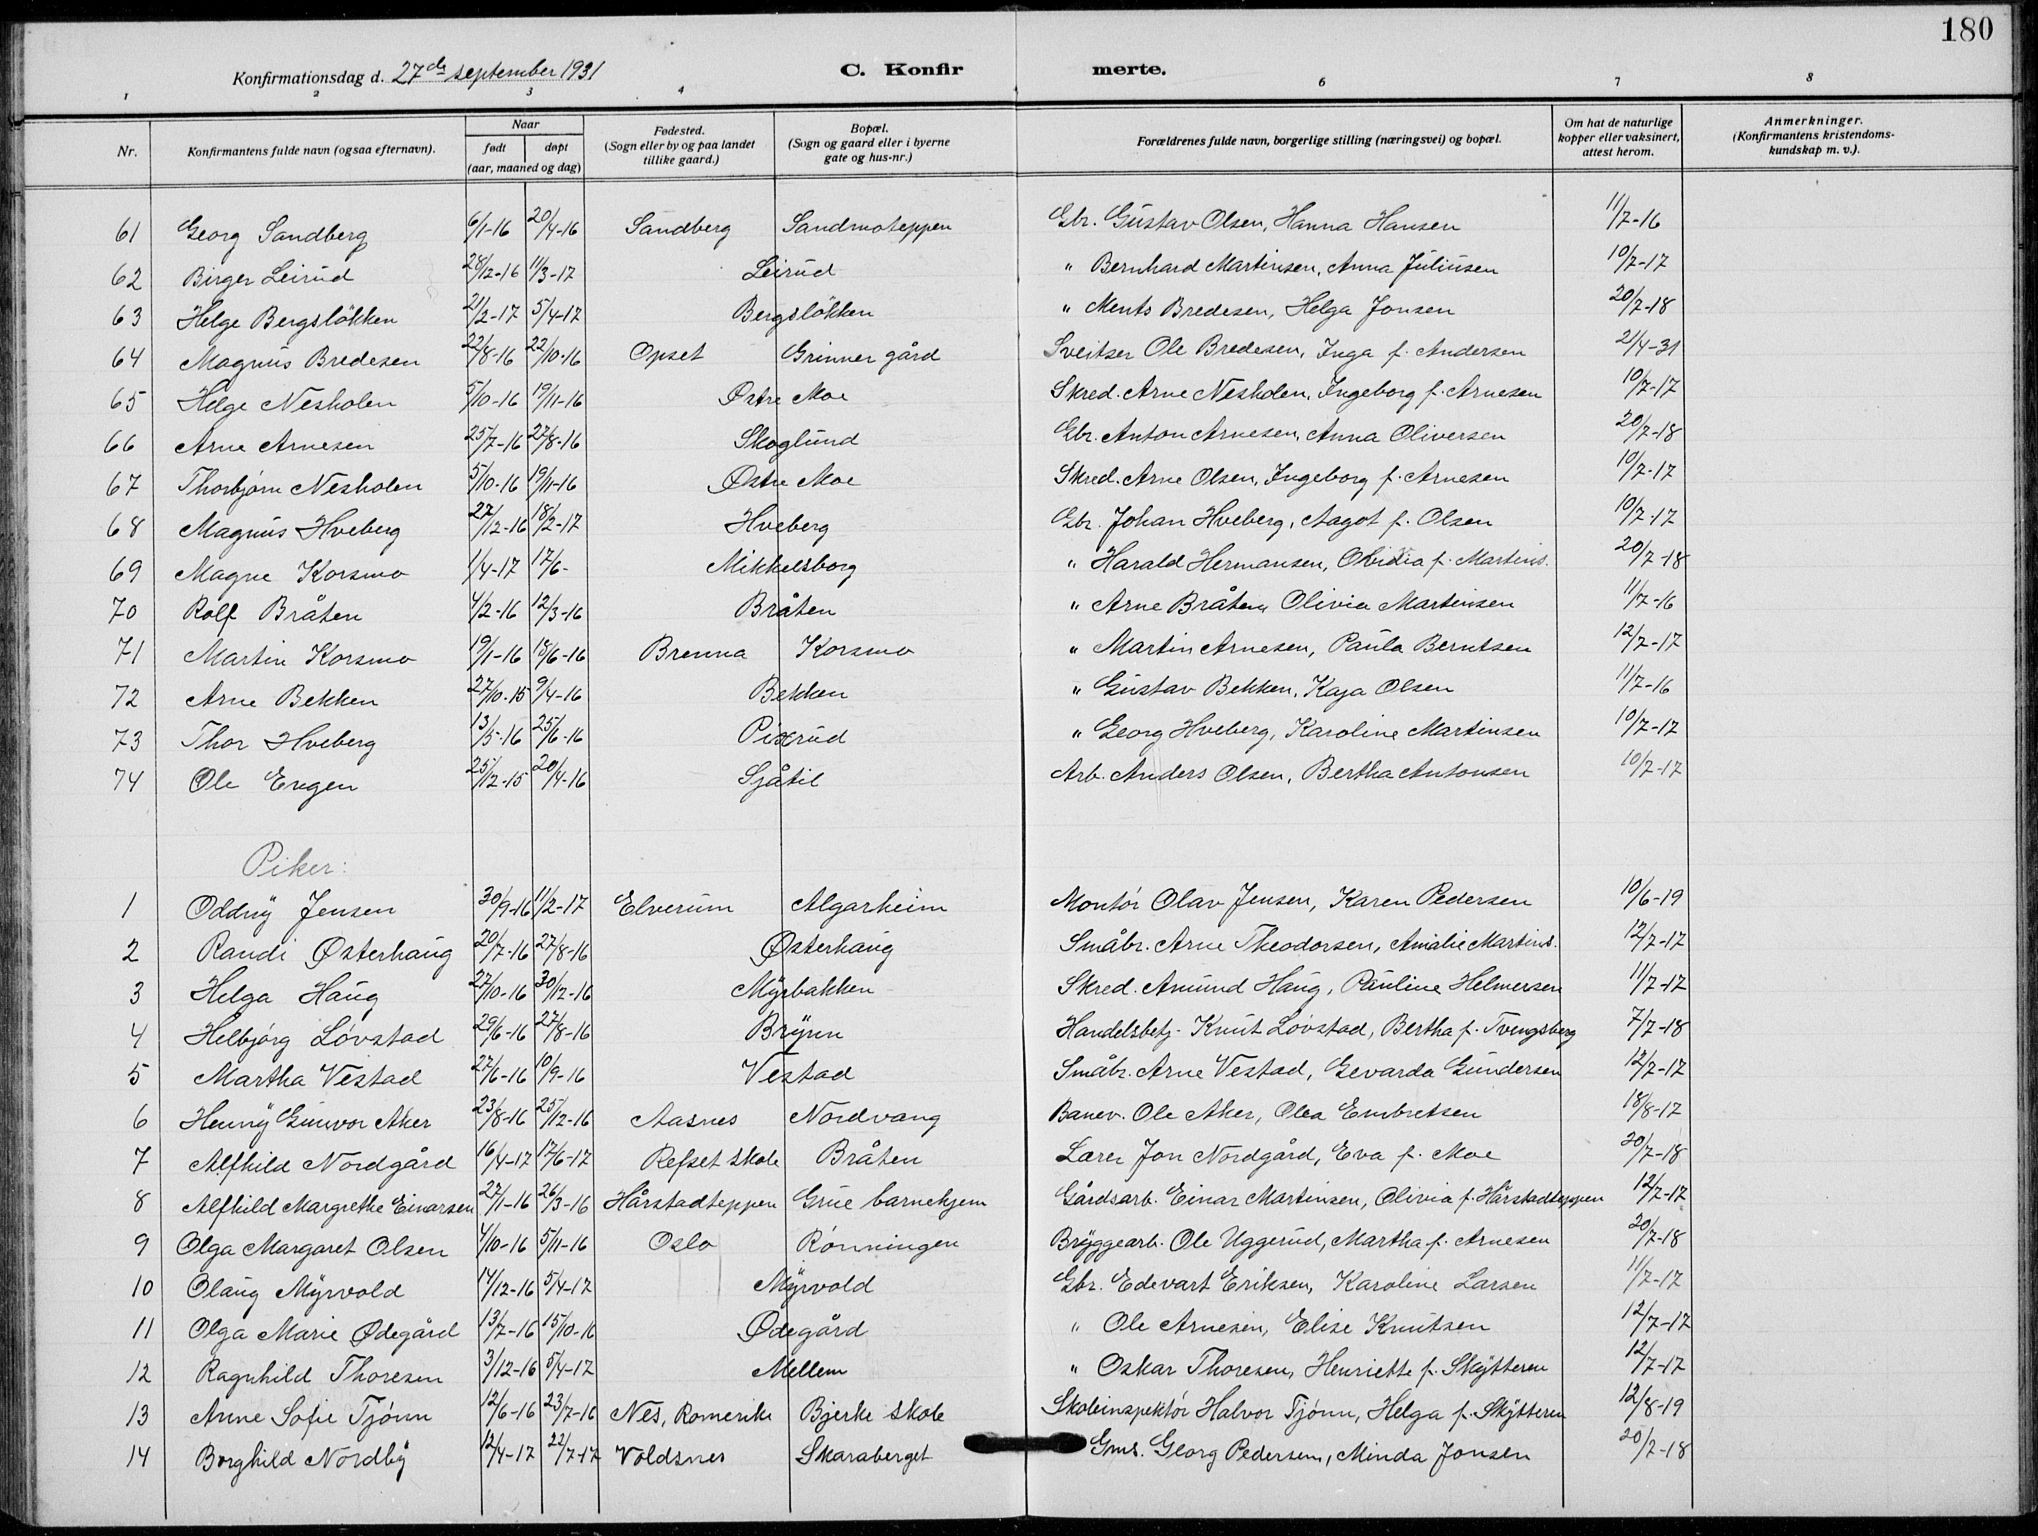 180
Konfirmationsdag d. 27de september 1931 C. Konfirmerte.
1 2 3 4 6 7 8
Nr. Konfirmantens fulde navn (ogsaa efternavn). Naar født døpt (aar, maaned og dag) Fødested. (Sogn eller by og paa landet tillike gaard.) Bopæl. (Sogn og gaard eller i byerne gate og hus-nr.) Forældrenes fulde navn, borgerlige stilling (næringsvei) og bopæl. Om hat de naturlige kopper eller vaksinert, attest herom. Anmerkninger. (Konfirmantens kristendoms-kundskap m. v.).
61 Georg Sandberg 6/1-16 20/4-16 Sandberg Sandmoteppen Gbr. Gustav Olsen, Hanna Hansen 11/7-16
62 Birger Leirud 28/12-16 11/3-17 Leirud " Bernhard Martinsen, Anna Juliusen 10/7-17
63 Helge Bergsløkken 21/2-17 5/4-17 Bergsløkken " Ments Bredesen, Helga Jonsen 20/7-18
64 Magnus Bredesen 22/8-16 22/10-16 Opset Grinner gård Sveitser Ole Bredesen, Inga f. Andersen 21/4-31
65 Helge Nesholen 5/10-16 19/11-16 Østre Moe Skred. Arne Nesholen, Ingeborg f. Arnesen 10/7-17
66 Arne Arnesen 25/7-16 27/8-16 Skoglund Gbr. Anton Arnesen, Anna Oliversen 20/7-18
67 Thorbjørn Nesholen 5/10-16 19/11-16 Østre Moe Skred. Arne Olsen, Ingeborg f. Arnesen 10/7-17
68 Magnus Hveberg 27/12-16 18/2-17 Hveberg Gbr. Johan Hveberg, Aagot f. Olsen 10/7-17
69 Magne Korsmo 1/4-17 17/6- Mikkelsborg " Harald Hermansen, Ovidia f. Martins. 20/7-18
70 Rolf Bråten 4/2-16 12/3-16 Bråten " Arne Bråten, Olivia Martinsen 11/7-16
71 Martin Korsmo 19/1-16 18/6-16 Brenna Korsmo " Martin Arnesen, Paula Berntsen 12/7-17
72 Arne Bekken 27/10-15 9/4-16 Bekken " Gustav Bekken, Kaja Olsen 11/7-16
73 Thor Hveberg 13/5-16 25/6-16 Pixrud " Georg Hveberg, Karoline Martinsen 10/7-17
74 Ole Engen 25/12-15 20/4-16 Sjåtil Arb. Anders Olsen, Bertha Antonsen 10/7-17
Piker:
1 Oddny Jensen 30/9-16 11/2-17 Elverum Algarheim Montør Olav Jensen, Karen Pedersen 10/6-19
2 Randi Østerhaug 20/7-16 27/8-16 Østerhaug Småbr. Arne Theodorsen, Amalie Martins. 12/7-17
3 Helga Haug 27/10-16 30/12-16 Myrbakken Skred. Amund Haug, Pauline Helmersen 11/7-17
4 Helbjørg Løvstad 29/6-16 27/8-16 Brynn Handelsbetj. Knut Løvstad, Bertha f. Tvengsberg 7/7-18
5 Martha Vestad 27/6-16 10/9-16 Vestad Småbr. Arne Vestad, Gevarda Gundersen 12/7-17
6 Henny Gunvor Aker 23/8-16 25/12-16 Aasnes Nordvang Banev. Ole Aker, Olea Embretsen 18/8-17
7 Alfhild Nordgård 16/4-17 17/6-17 Refset skole Bråten Lærer Jon Nordgård, Eva f. Moe 20/7-18
8 Alfhild Margrethe Einarsen 27/1-16 26/3-16 Hårstadteppen Grue barnehjem Gårdsarb. Einar Martinsen, Olivia f. Hårstadteppen 12/7-17
9 Olga Margaret Olsen 4/10-16 5/11-16 Oslo Rønningen Bryggearb. Ole Uggerud, Martha f. Arnesen 20/7-18
10 Olaug Myrvold 14/12-16 5/4-17 Myrvold Gbr. Edevart Eriksen, Karoline Larsen 11/7-17
11 Olga Marie Ødegård 13/7-16 15/10-16 Ødegård " Ole Arnesen, Elise Knutsen 12/7-17
12 Ragnhild Thoresen 3/12-16 5/4-17 Mellem " Oskar Thoresen, Henriette f. Skytteren 12/7-17
13 Anne Sofie Tjønn 12/6-16 23/7-16 Nes, Romerike Bjerke skole Skoleinspektør Halvor Tjønn, Helga f. Skytteren 12/8-19
14 Borghild Nordby 12/4-17 22/7-17 Voldsnes Skaraberget Gms. Georg Pedersen, Minda Jonsen 20/7-18